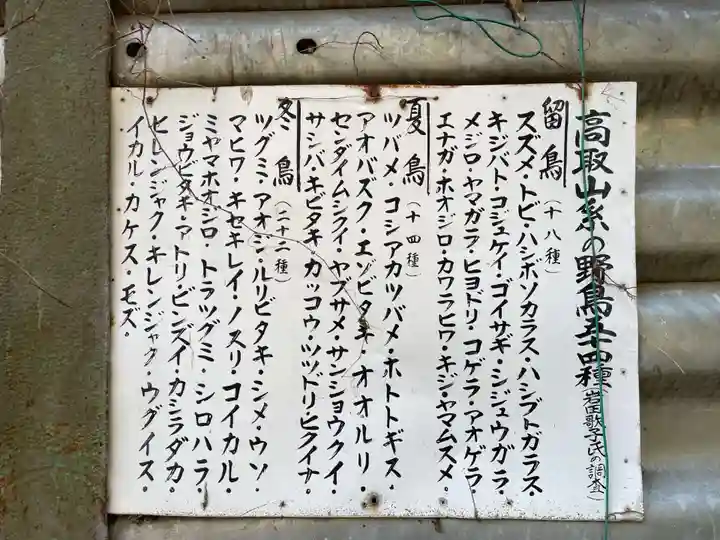 高取山系の野鳥五十四種(岩田歌子氏の調査)
留鳥(十八種)
スズメ・トビ・ハシボソカラス・ハシブトガラス・
キジバト・コジュケイ・ゴイサギ・シジュウガラ・
メジロ・ヤマガラ・ヒヨドリ・コゲラ・アオゲラ・
エナガ・ホオジロ・カワラヒワ・キジ・ヤマムスメ・
夏鳥(十四種)
ツバメ・コシアカツバメ・ホトトギス・
アオバズク・エゾビタキ・オオルリ・
センダイムシクイ・ヤブサメ・サンショウクイ・
サシバ・キビタキ・カッコウ・ツツドリ・ヒクイナ・
冬鳥(二十二種)
ツグミ・アオジ・ルリビタキ・シメ・ウソ・
マヒワ・キセキレイ・ノスリ・コイカル・
ミヤマホオジロ・トラツグミ・シロハラ・
ジョウビタキ・アトリ・ビンズイ・カシラダカ・
ヒレンジャク・キレンジャク・ウグイス・
イカル・カケス・モズ。